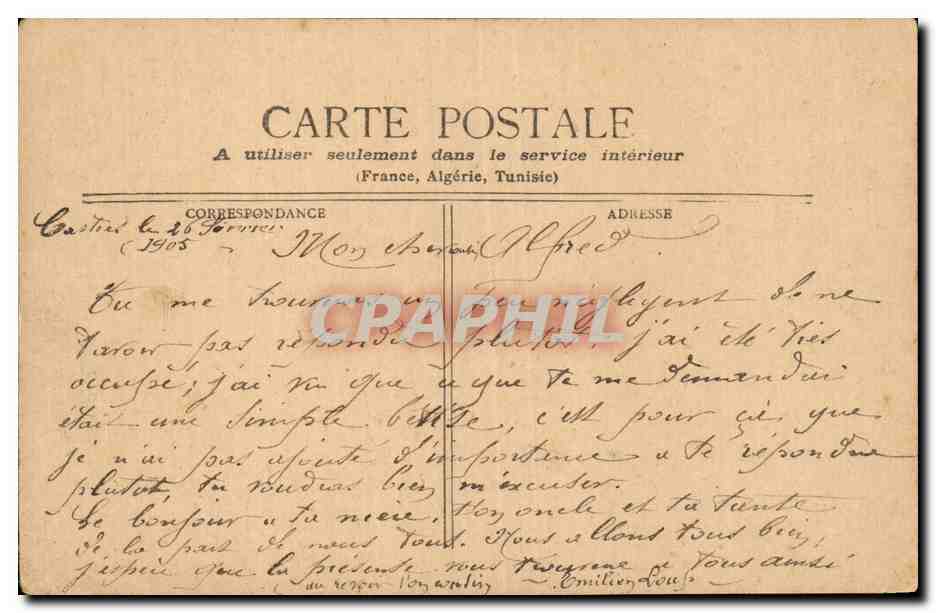 CARTE POSTALE
A utiliser seulement dans le service intérieur
(France, Algérie, Tunisie)
CORRESPONDANCE
ADRESSE
Castres le 26 Février
1905
Mon cher cousin Alfred.
Tu me trouveras un peu négligent de ne
t'avoir pas répondu plutôt, j'ai été très
occupé; j'ai vu que ce que tu me demandai
était une simple bêtise, c'est pour ça que
je n'ai pas ajouté d'importance a te répondre
plutôt, tu voudras bien m'excuser.
Le bonjour a ta mère, ton oncle et ta tante
de la part de nous tous. Nous allons tous bien,
j'espère que la présente vous trouvera a tous ainsi
au revoir ton cousin Emilien
CPAPHIL